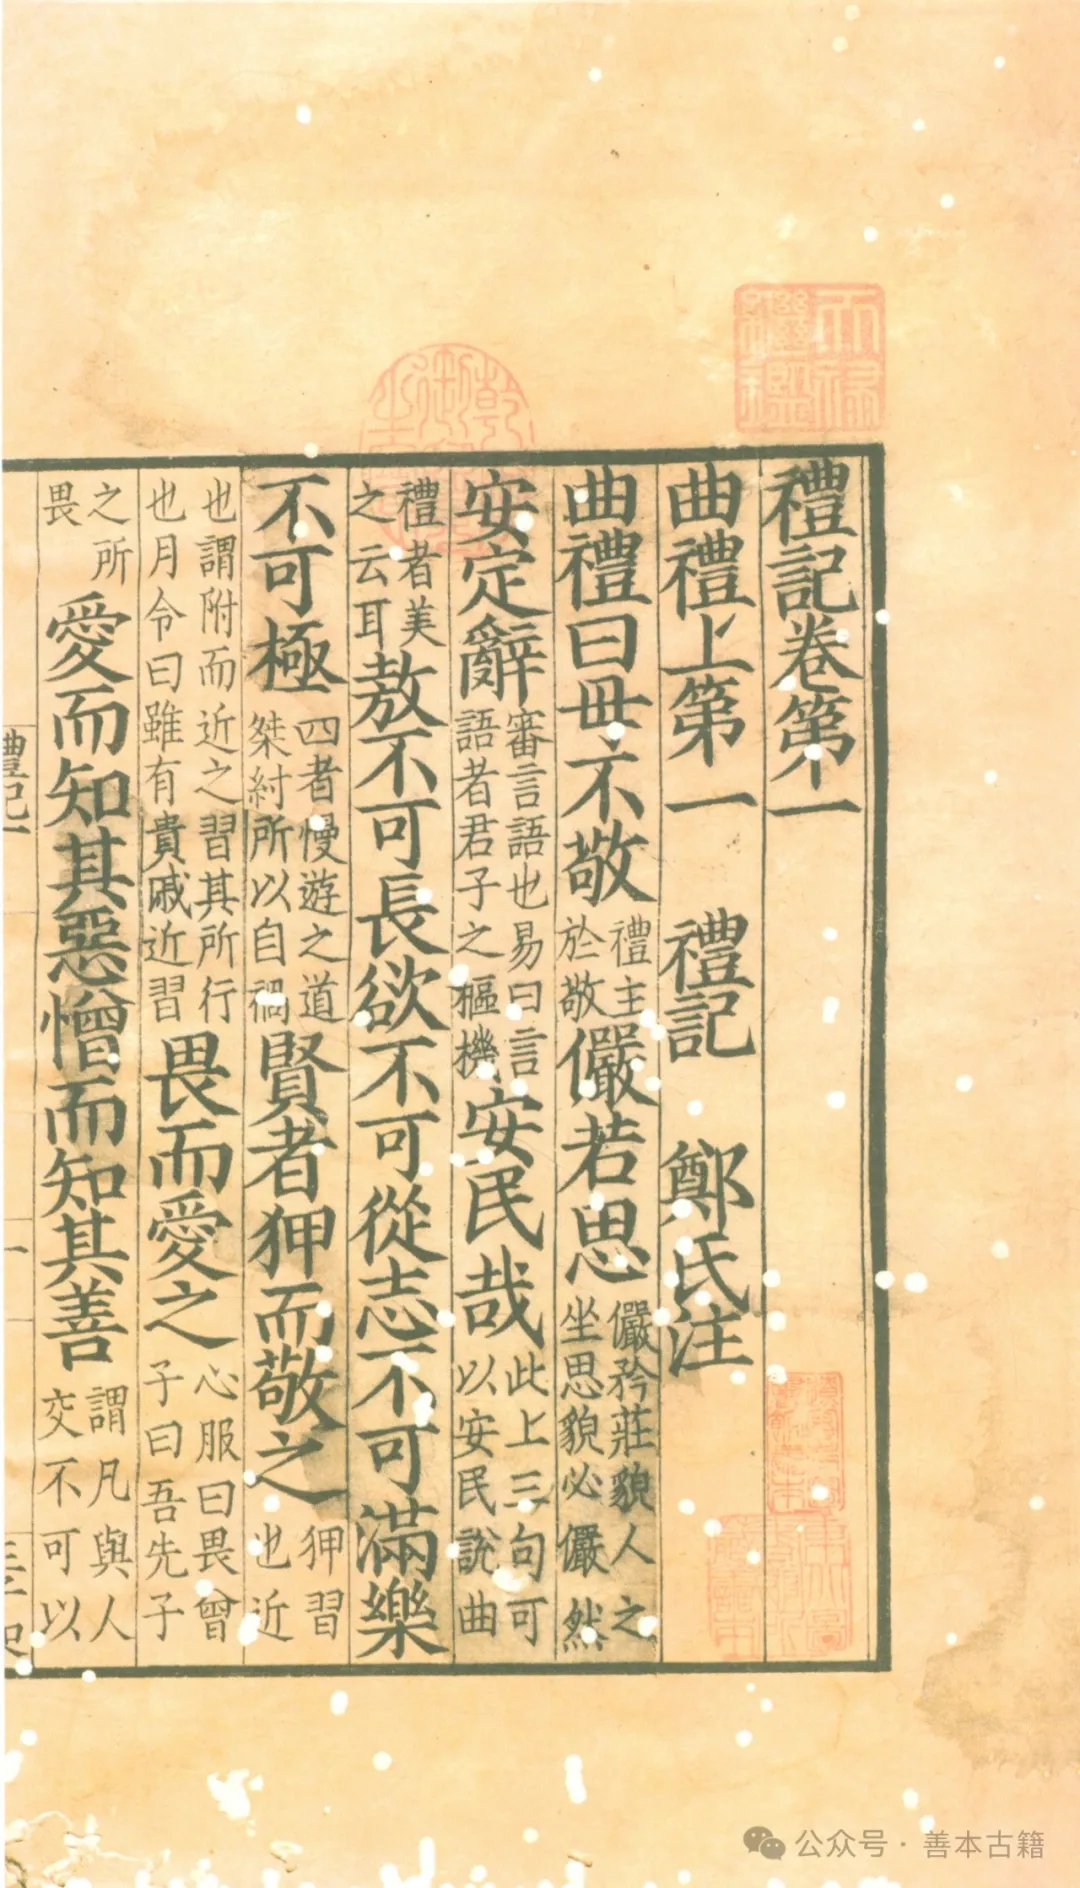 禮記卷第一
曲禮上第一 禮記 鄭氏注
曲禮曰毋不敬禮主於敬儼若思儼矜莊貌人之坐思貌必儼然
安定辭審言語也易曰言語者君子之樞機安民哉此上三句可以安民說曲
禮者美之云耳敖不可長欲不可從志不可滿樂
不可極四者慢遊之道桀紂所以自禍賢者狎而敬之狎習也近
也謂附而近之習其所行也月令曰雖有貴戚近習畏而愛之心服曰畏曾子曰吾先子
之所畏愛而知其惡憎而知其善謂凡與人交不可以
禮記一
一
天祿繼鑑
公众号·善本古籍